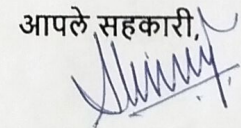 आपले सहकारी,